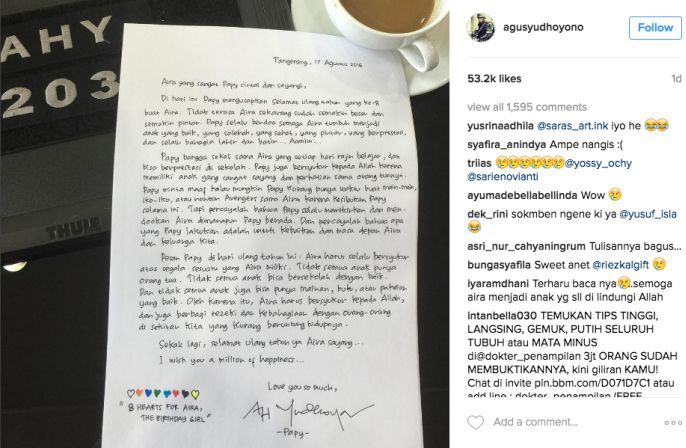 AHY
203
THULE
Tangerang, 17 Agustus 2016
Aira yang sangat Papy cintai dan sayangi,
Di hari ini Papy mengucapkan Selamat ulang tahun yang ke-8
buat Aira. Tidak terasa Aira sekarang sudah semakin besar dan
semakin pintar. Papy selalu berdoa semoga Aira tumbuh menjadi
anak yang baik, yang solehah, yang sehat, yang pintar, yang berprestasi,
dan selalu bahagia lahir dan batin... Aamiin...
Papy bangga sekali sama Aira yang setiap hari rajin belajar, dan
bisa berprestasi di sekolah. Papy juga bersyukur kepada Allah karena
memiliki anak yang sangat sayang dan perhatian sama orang tuanya.
Papy minta maaf kalau mungkin Papy kurang punya waktu buat main-main,
atau nonton Avengers sama Aira karena kesibukan Papy
selama ini. Tapi percayalah bahwa Papy selalu memikirkan dan men-
doakan Aira dimanapun Papy berada. Dan percayalah bahwa apa
yang Papy lakukan adalah untuk kebaikan dan masa depan Aira
dan keluarga kita.
Pesan Papy di hari ulang tahun ini. Aira harus selalu bersyukur
atas segala sesuatu yang Aira miliki. Tidak semua anak punya
orang tua. Tidak semua anak bisa bersekolah dengan baik.
Dan tidak semua anak juga bisa punya mainan, buku, atau pakaian
yang baik. Oleh karena itu, Aira harus bersyukur kepada Allah,
dan juga berbagi rezeki dan kebahagiaan dengan orang-orang
di sekitar kita yang kurang beruntung hidupnya.
Sekali lagi, selamat ulang tahun ya Aira sayang...
I wish you a million of happiness...
Love you so much,
"8 HEARTS FOR AIRA,
THE BIRTHDAY GIRL"
AH Yudhoyono
-Papy-
agusyudhoyono
Follow
53.2k likes
1d
view all 1,595 comments
yusrinaadhila @saras_art.ink iyo he 😂😂
syafira_anindya Ampe nangis :(
triias 😢😢😢😢😢😢 @yossy_ochy
@sarienovianti
ayumadebellabellinda Wow 😢
dek_rini sokmben ngene ki ya @yusuf_isla
😂
asri_nur_cahyaningrum Tulisannya bagus...
bungasyafila Sweet anet @riezkalgift 😢
iyaramdhani Terharu baca nya😢..semoga
aira menjadi anak yg sll di lindungi Allah
intanbella030 TEMUKAN TIPS TINGGI,
LANGSING, GEMUK, PUTIH SELURUH
TUBUH atau MATA MINUS
di@dokter_penampilan 3jt ORANG SUDAH
MEMBUKTIKANNYA, kini giliran KAMU!
Chat di invite pin.bbm.com/D071D7C1 atau
add line : dokter_penampilan (FREE
Add a comment...